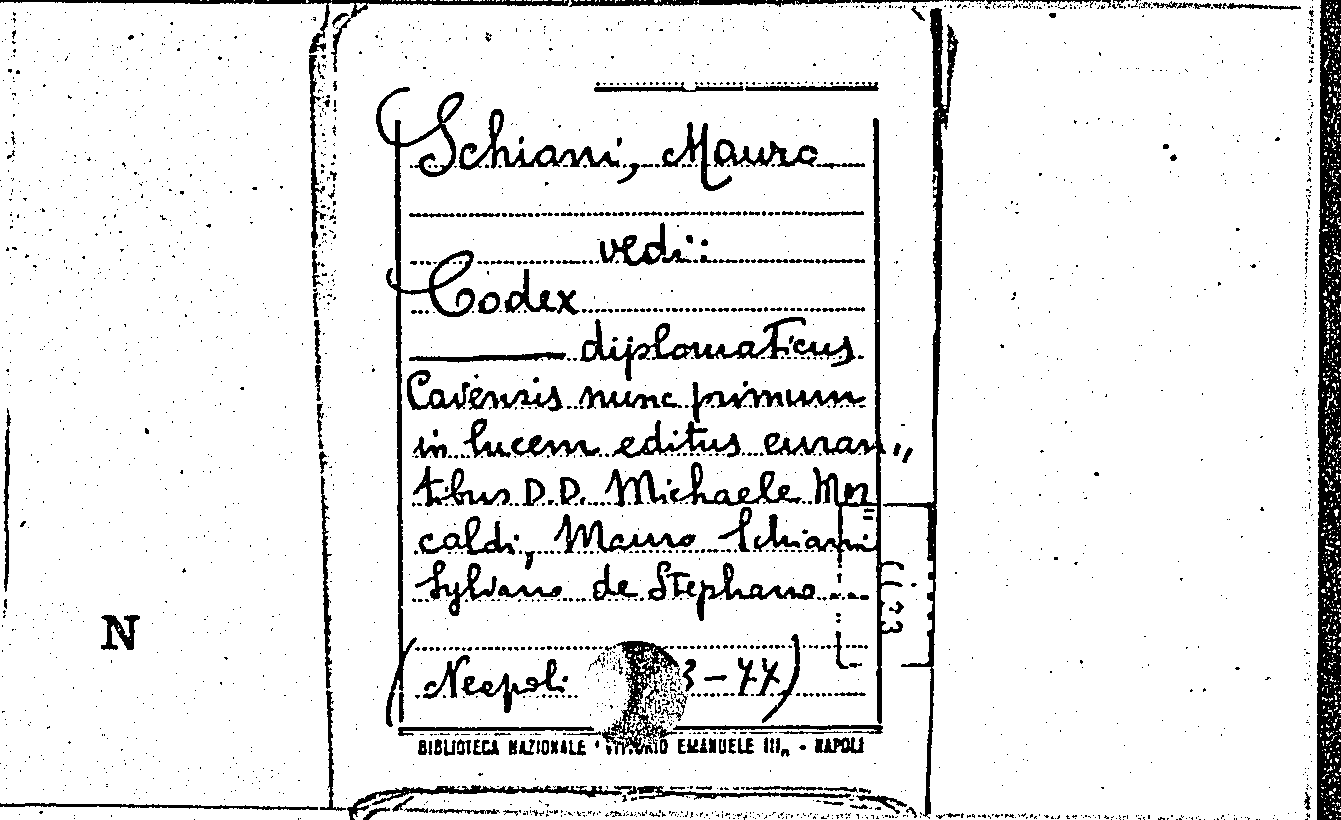 Schiani, Mauro
vedi:
Codex
diplomaticus
Cavensis nunc primum
in lucem editus curan„
tibus D.D. Michaele Mor
caldi, Mauro Schiani
Sylvano de Stephano...
(Neapoli 3-77)
N
BIBLIOTECA NAZIONALE "VITTORIO EMANUELE III„ - NAPOLI